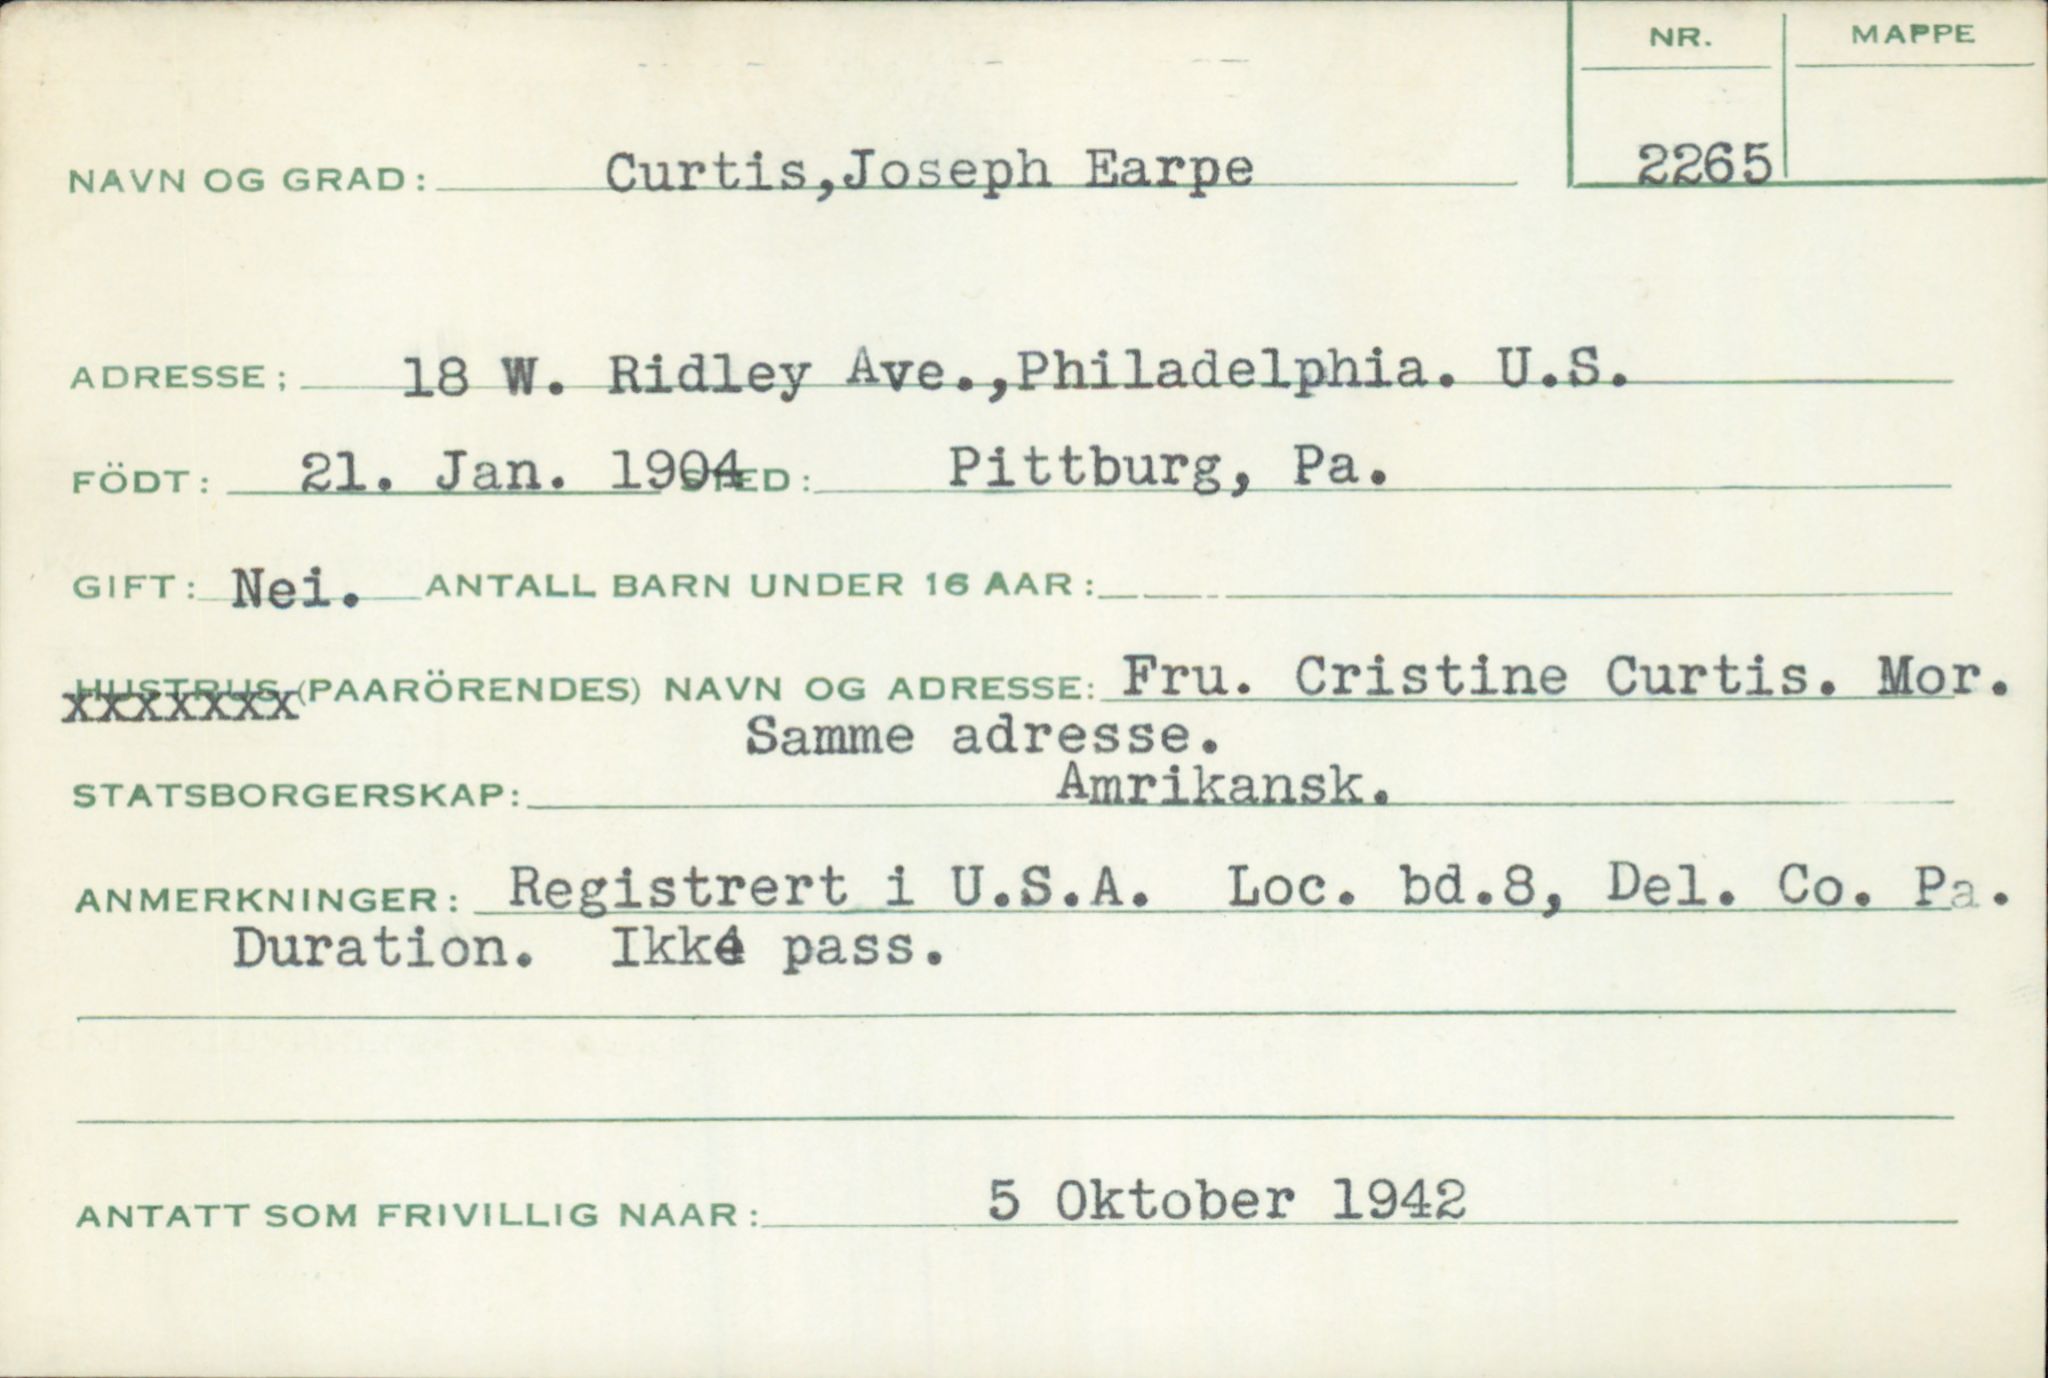 NR. MAPPE
NAVN OG GRAD: Curtis,Joseph Earpe 2265
ADRESSE; 18 W. Ridley Ave.,Philadelphia. U.S.
FÖDT: 21. Jan. 1904 STED: Pittburg, Pa.
GIFT: Nei. ANTALL BARN UNDER 16 AAR:
HUSTRUS (PAARÖRENDES) NAVN OG ADRESSE: Fru. Cristine Curtis. Mor.
xxxxxxx
Samme adresse.
STATSBORGERSKAP: Amrikansk.
ANMERKNINGER: Registrert i U.S.A. Loc. bd.8, Del. Co. Pa.
Duration. Ikke pass.
ANTATT SOM FRIVILLIG NAAR: 5 Oktober 1942